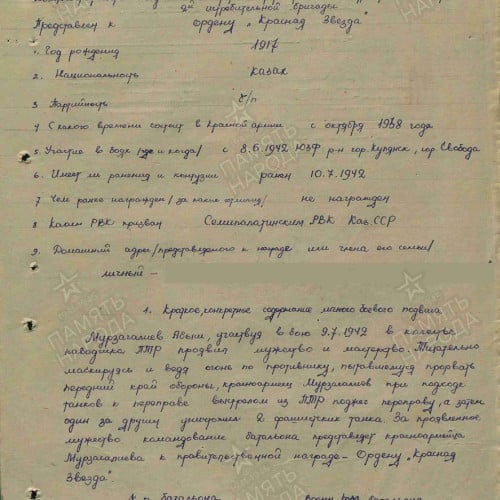 2ой истребительной бригады
Представлен к Ордену „Красная Звезда"
1. Год рождения 1917
2. Национальность казах
3 Партийность б/п
4 С какого времени состоит в Красной армии с октября 1938 года
5. Участие в боях /где и когда/ с 8.6.1942 ЮЗФ р-н гор Купянск, гор Свобода
6. Имеет ли ранения и контузии ранен 10.7.1942
7. Чем ранее награжден /за какие отличия/ не награжден
8 Каким РВК призван Семипалатинским РВК Каз.ССР
9. Домашний адрес /представляемого к награде или члена его семьи/
личный –
1. Краткое, конкретное содержание личного боевого подвига
Мурзагалиев Абыш, участвуя в бою 9.7.1942 в качестве
наводчика ПТР проявил мужество и мастерство. Тщательно
маскируясь и ведя огонь по противнику, пытавшемуся прорвать
передний край обороны, красноармеец Мурзагалиев при подходе
танков к переправе выстрелом из ПТР поджег переправу, а затем
один за другим уничтожил 2 фашистских танка. За проявленное
мужество командование батальона представляет красноармейца
Мурзагалиева к правительственной награде – Ордену „Красная
Звезда".
батальона
ПАМЯТЬ НАРОДА
ПАМЯТЬ НАРОДА
ПАМЯТЬ НАРОДА